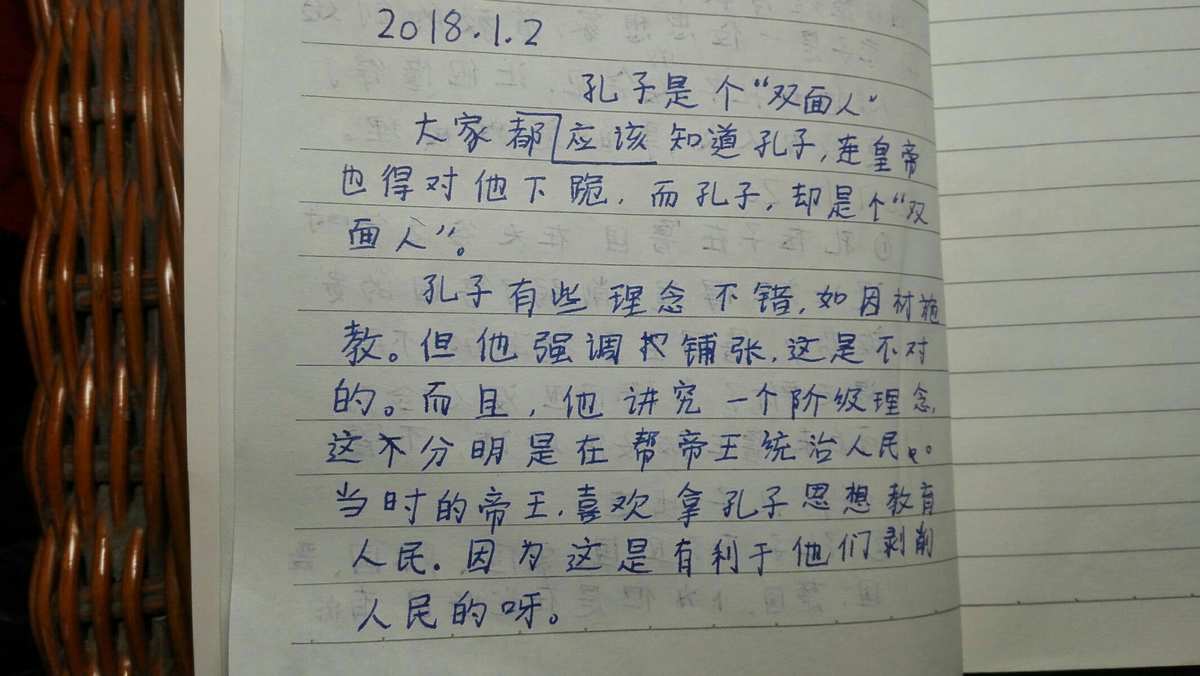 2018.1.2
孔子是个“双面人”
大家都应该知道孔子,连皇帝
也得对他下跪.而孔子,却是个“双
面人”。
孔子有些理念不错,如因材施
教。但他强调把铺张,这是不对
的。而且,他讲究一个阶级理念,
这不分明是在帮帝王统治人民。
当时的帝王.喜欢拿孔子思想教育
人民.因为这是有利于他们剥削
人民的呀。